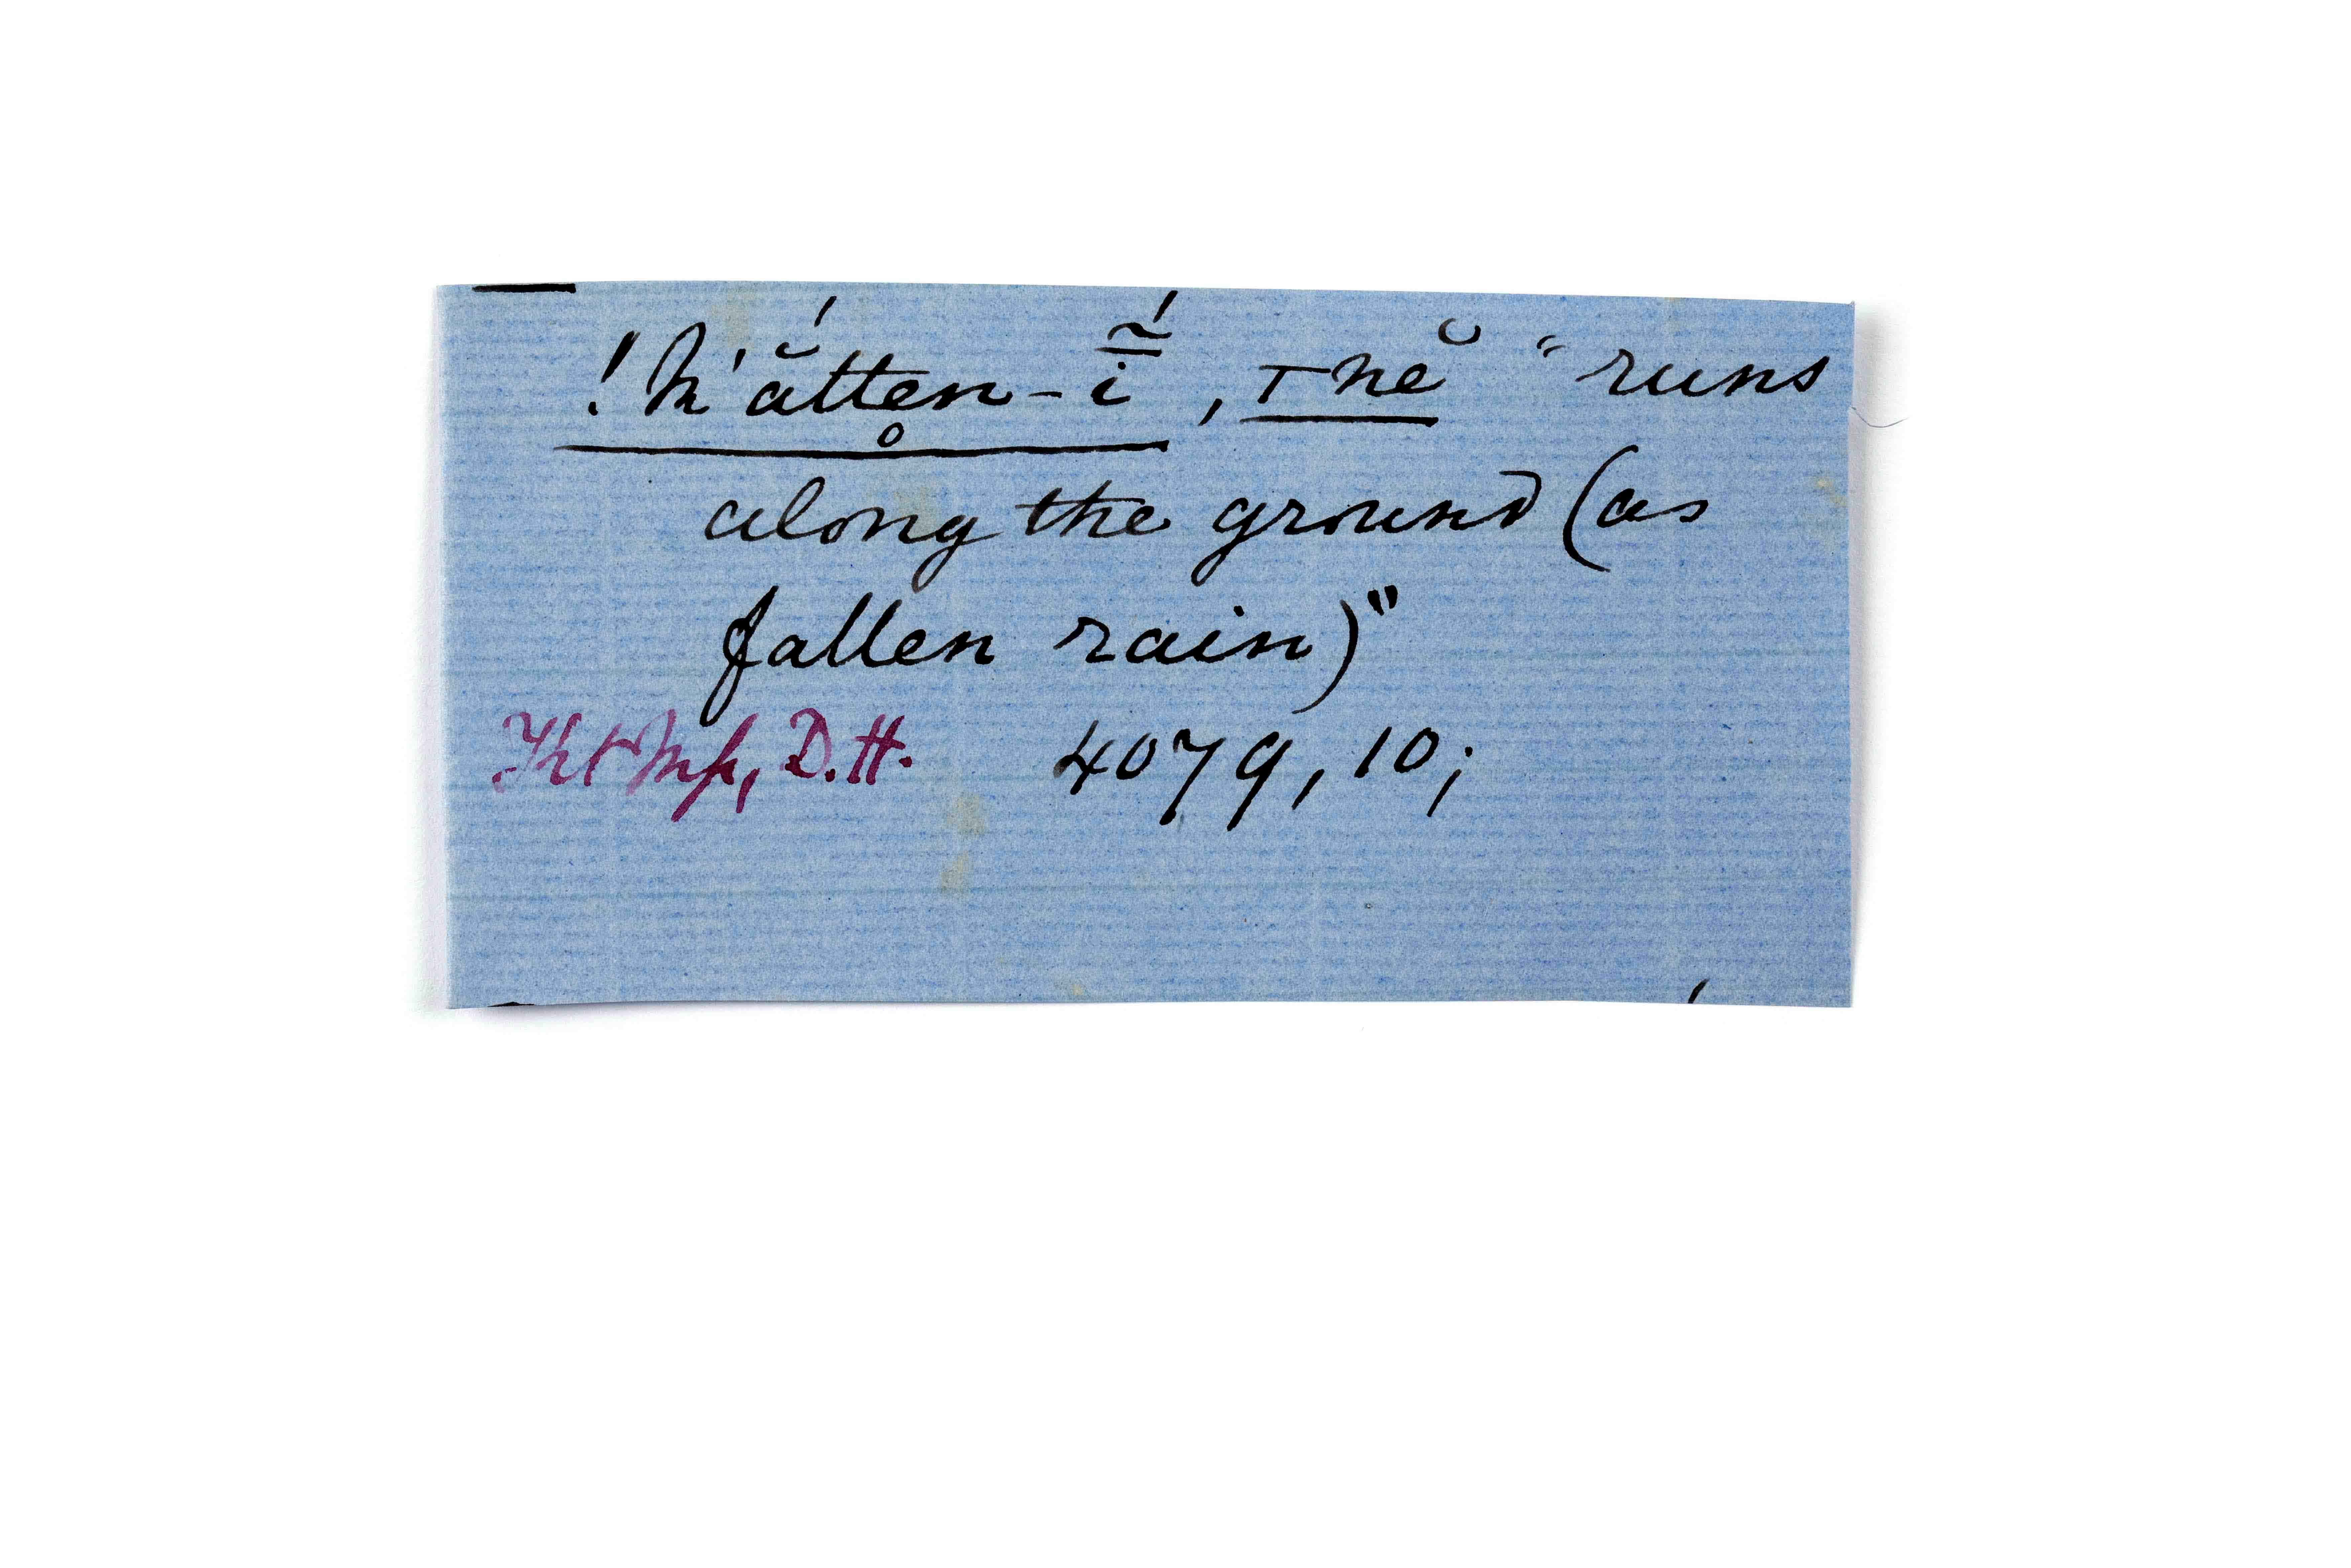 !k'ắtten-ī̃́, ⊤nĕ "runs
along the ground (as
fallen rain)"
D.H. 4079, 10;